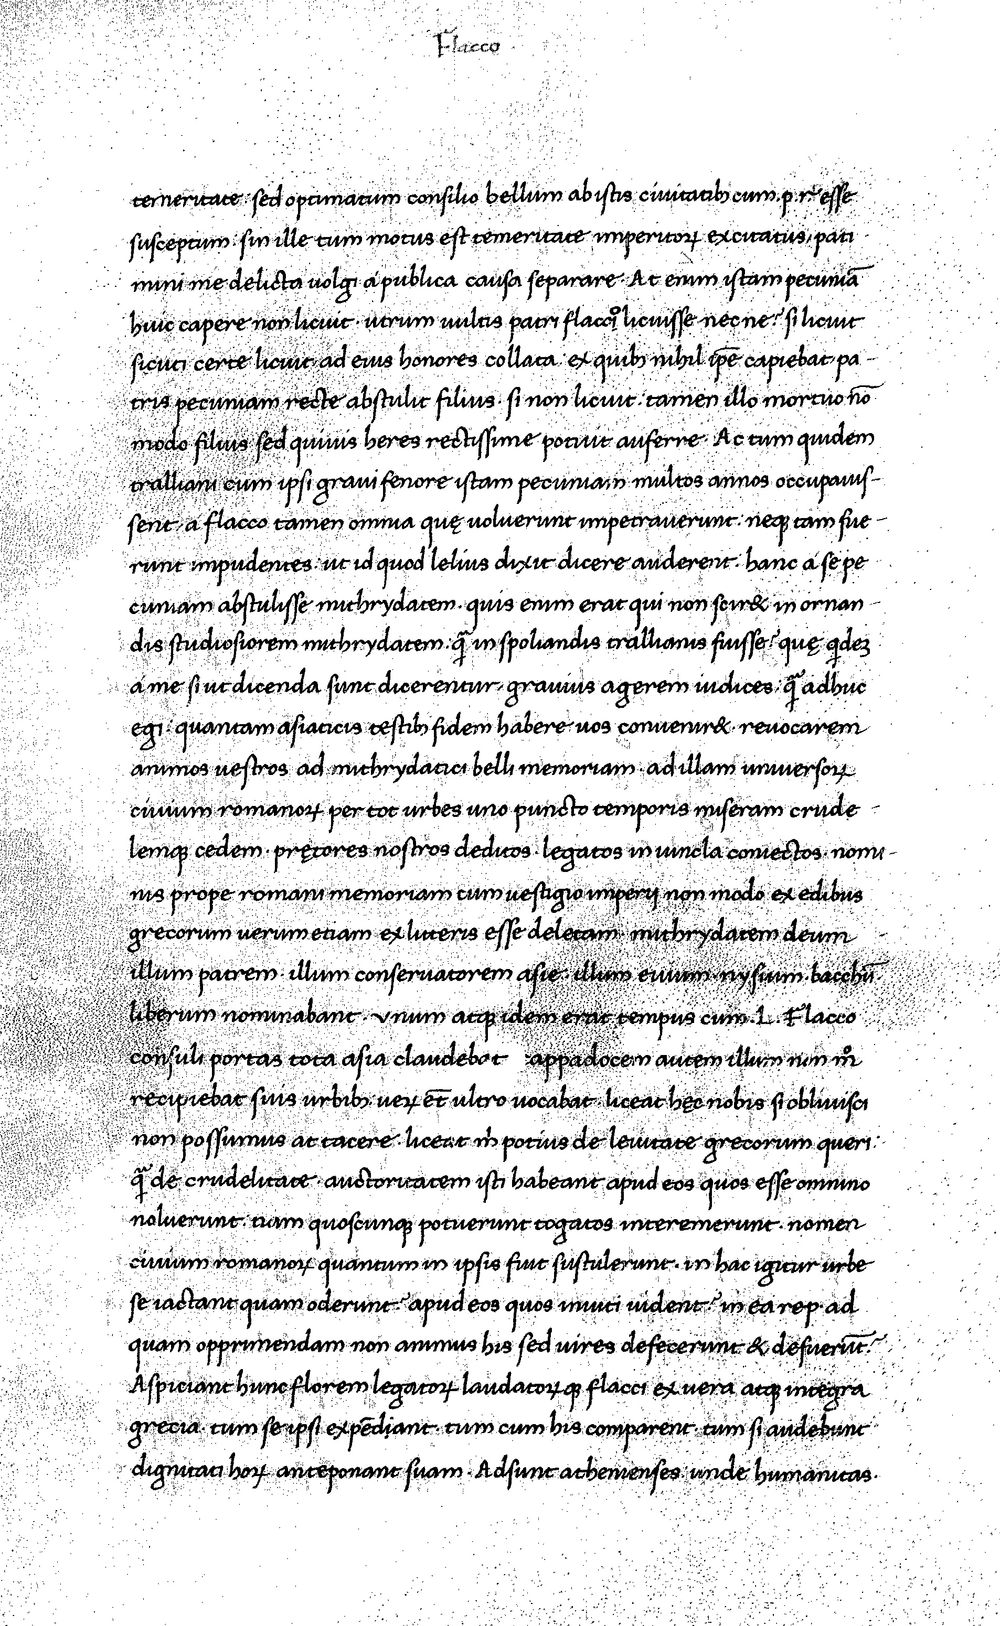 Flacco
temeritate· sed optimatum consilio bellum ab istis ciuitatibꝫ cum .p.r̄. esse
susceptum· sin ille tum motus est temeritate imperitoꝝ excitatus, pati
mini me delicta uolgi a publica causa separare· At enim istam pecuniā
huic capere non licuit· utrum uultis patri flacco licuisse necne? si licuit
sicuti certe licuit, ad eius honores collata· ex quibꝫ nihil ip̄e capiebat, pa-
tris pecuniam recte abstulit filius· si non licuit· tamen illo mortuo nō
modo filius sed quiuis heres rectissime potuit auferre· Ac tum quidem
tralliani cum ipsi graui fenore istam pecuniam multos annos occupauis-
sent, a flacco tamen omnia quę uoluerunt impetrauerunt· neqꝫ tam fue-
runt impudentes· ut id quod lelius dixit dicere auderent· hanc a se pe
cuniam abstulisse mithrydatem· quis enim erat qui non scir& in ornan-
dis studiosiorem mithrydatem· q̄ in spoliandis trallianis fuisse? quę qideꝫ
a me si ut dicenda sunt dicerentur, grauius agerem iudices, q̄ adhuc
egi· quantam asiaticis testibꝫ fidem habere uos conuenir&· reuocarem
animos uestros ad mithrydatici belli memoriam· ad illam uniuersoꝝ
ciuium romanoꝝ per tot urbes uno puncto temporis miseram crude-
lemqꝫ cedem· pręcores nostros deditos· legatos in uincla coniectos· nomi-
nis prope romani memoriam cum uestigio imperij non modo ex edibus
grecorum uerum etiam ex litteris esse deletam· mithrydatem deum
illum patrem· illum conseruatorem asie· illum euium· nysium· bacchū·
liberum nominabant· vnum atqꝫ idem erat tempus cum .L. Flacco
consuli portas tota asia claudebat   appadocem autem illum non mͦ
recipiebat suis urbibꝫ ueꝝ et̄ ultro uocabat· liceat hęc nobis si obliuisci
non possumus at tacere· liceat m̄ potius de leuitate grecorum queri·
q̄ de crudelitate· auctoritatem isti habeant apud eos quos esse omnino
noluerunt· nam quoscunqꝫ potuerunt togatos interemerunt· nomen
ciuium romanoꝝ quantum in ipsis fuit sustulerunt· in hac igitur urbe
se iactant quam oderunt? apud eos quos inuiti uident? in ea rep· ad
quam opprimendam non animus his sed uires defecerunt & defuerūt?
Aspiciant hunc florem legatoꝝ laudatoꝝqꝫ flacci ex uera atqꝫ integra
grecia· tum se ipsi exp̄ediant· tum cum his comparent· tum si audebunt
dignitati hoꝝ anteponant suam· Adsunt athenienses· unde humanitas·